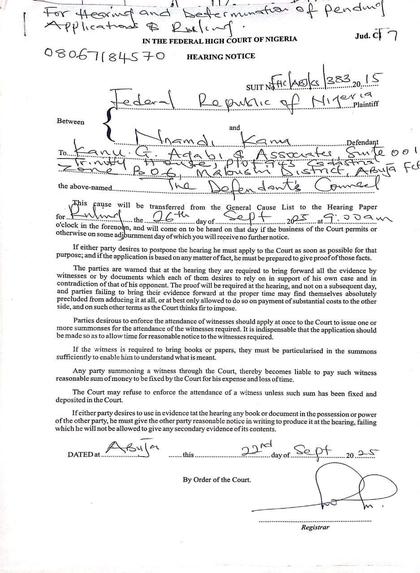 For Hearing and Determination of Pending
Applications & Ruling.
Jud. CF 7
IN THE FEDERAL HIGH COURT OF NIGERIA
08067184570
HEARING NOTICE
SUIT No FHC/ABJ/CS/383 2015
Federal Republic of Nigeria
Plaintiff
Between
and
Nnamdi Kanu
Defendant
To Kanu G. Agabi & Associates, Suite 001
Trinity House, Plot 943 Cadastral
Zone B06, Mabushi District, Abuja FCT
the above-named The Defendant's Counsel
This cause will be transferred from the General Cause List to the Hearing Paper
for Ruling the 26th day of Sept 2025 9:00am
o'clock in the forenoon, and will come on to be heard on that day if the business of the Court permits or
otherwise on some adjournment day of which you will receive no further notice.
If either party desires to postpone the hearing he must apply to the Court as soon as possible for that
purpose; and if the application is based on any matter of fact, he must be prepared to give proof of those facts.
The parties are warned that at the hearing they are required to bring forward all the evidence by
witnesses or by documents which each of them desires to rely on in support of his own case and in
contradiction of that of his opponent. The proof will be required at the hearing, and not on a subsequent day,
and parties failing to bring their evidence forward at the proper time may find themselves absolutely
precluded from adducing it at all, or at best only allowed to do so on payment of substantial costs to the other
side, and on such other terms as the Court thinks fir to impose.
Parties desirous to enforce the attendance of witnesses should apply at once to the Court to issue one or
more summonses for the attendance of the witnesses required. It is indispensable that the application should
be made so as to allow time for reasonable notice to the witnesses required.
If the witness is required to bring books or papers, they must be particularised in the summons
sufficiently to enable him to understand what is meant.
Any party summoning a witness through the Court, thereby becomes liable to pay such witness
reasonable sum of money to be fixed by the Court for his expense and loss of time.
The Court may refuse to enforce the attendance of a witness unless such sum has been fixed and
deposited in the Court.
If either party desires to use in evidence tat the hearing any book or document in the possession or power
of the other party, he must give the other party reasonable notice in writing to produce it at the hearing, failing
which he will not be allowed to give any secondary evidence of its contents.
DATED at Abuja this 22nd day of Sept 2025
By Order of the Court.
Registrar